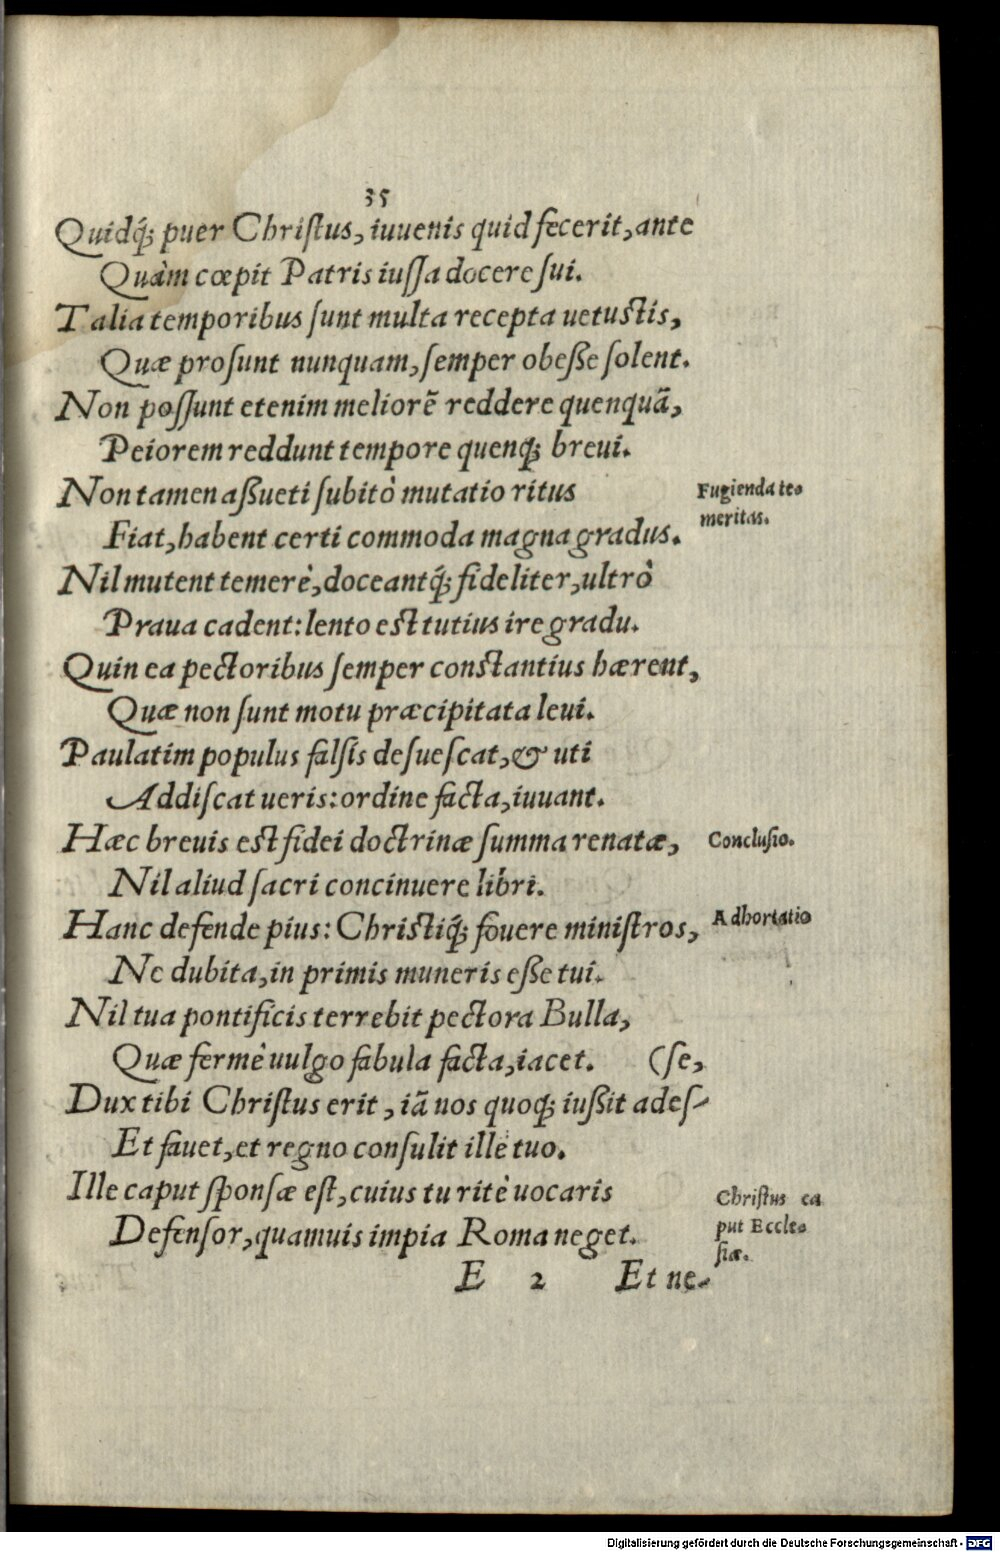 35
Quidq́; puer Chriſtus, iuuenis quid fecerit, ante
Quàm cœpit Patris iuſſa docere ſui.
Talia temporibus ſunt multa recepta uetustis,
Quæ proſunt nunquam, ſemper obeße ſolent.
Non poſſunt etenim meliorẽ reddere quenquã,
Peiorem reddunt tempore quenq; breui.
Non tamen aßueti ſubitò mutatio ritus
Fugienda te⸗
meritas.
Fiat, habent certi commoda magna gradus.
Nil mutent temerè, doceantq́; fideliter, ultrò
Praua cadent: lento est tutius ire gradu.
Quin ea pectoribus ſemper constantius hærent,
Quæ non ſunt motu præcipitata leui.
Paulatim populus falſis deſueſcat, & uti
Addiſcat ueris: ordine facta, iuuant.
Hæc breuis est fidei doctrinæ ſumma renatæ,
Concluſio.
Nil aliud ſacri concinuere libri.
Hanc defende pius: Christiq́; fouere miniſtros,
Adhortatio
Ne dubita, in primis muneris eße tui.
Nil tua pontificis terrebit pectora Bulla,
Quæ fermè uulgo fabula facta, iacet. (ſe,
Dux tibi Chriſtus erit, iã uos quoq; iußit adeſ-
Et fauet, et regno conſulit ille tuo.
Ille caput ſponſæ eſt, cuius tu ritè uocaris
Chriſtus ca
put Eccle⸗
ſiæ.
Defenſor, quamuis impia Roma neget.
E 2 Et ne-
Digitalisierung gefördert durch die Deutsche Forschungsgemeinschaft - DFG